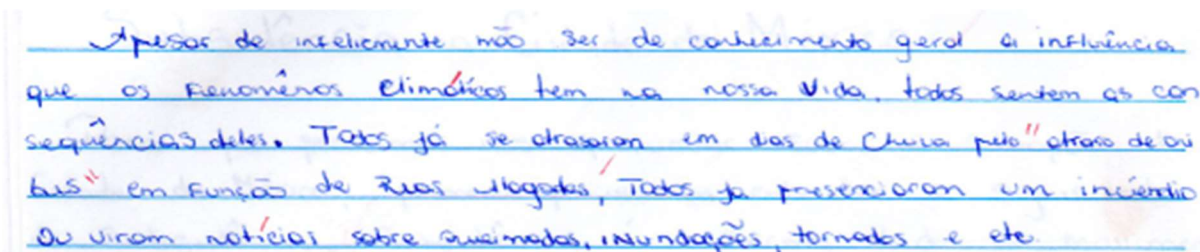 Apesar de infelicmente não ser de conhecimento geral a influência
que os Fenomênos Climáticos tem na nossa Vida, todos sentem as con
sequências deles. Todos já se atrasaram em dias de Chuva pelo "atraso de ôni
bus" em Função de Ruas Alagadas, Todos ja presenciaram um incêndio
Ou viram notícias sobre queimadas, inundações, tornados e etc.